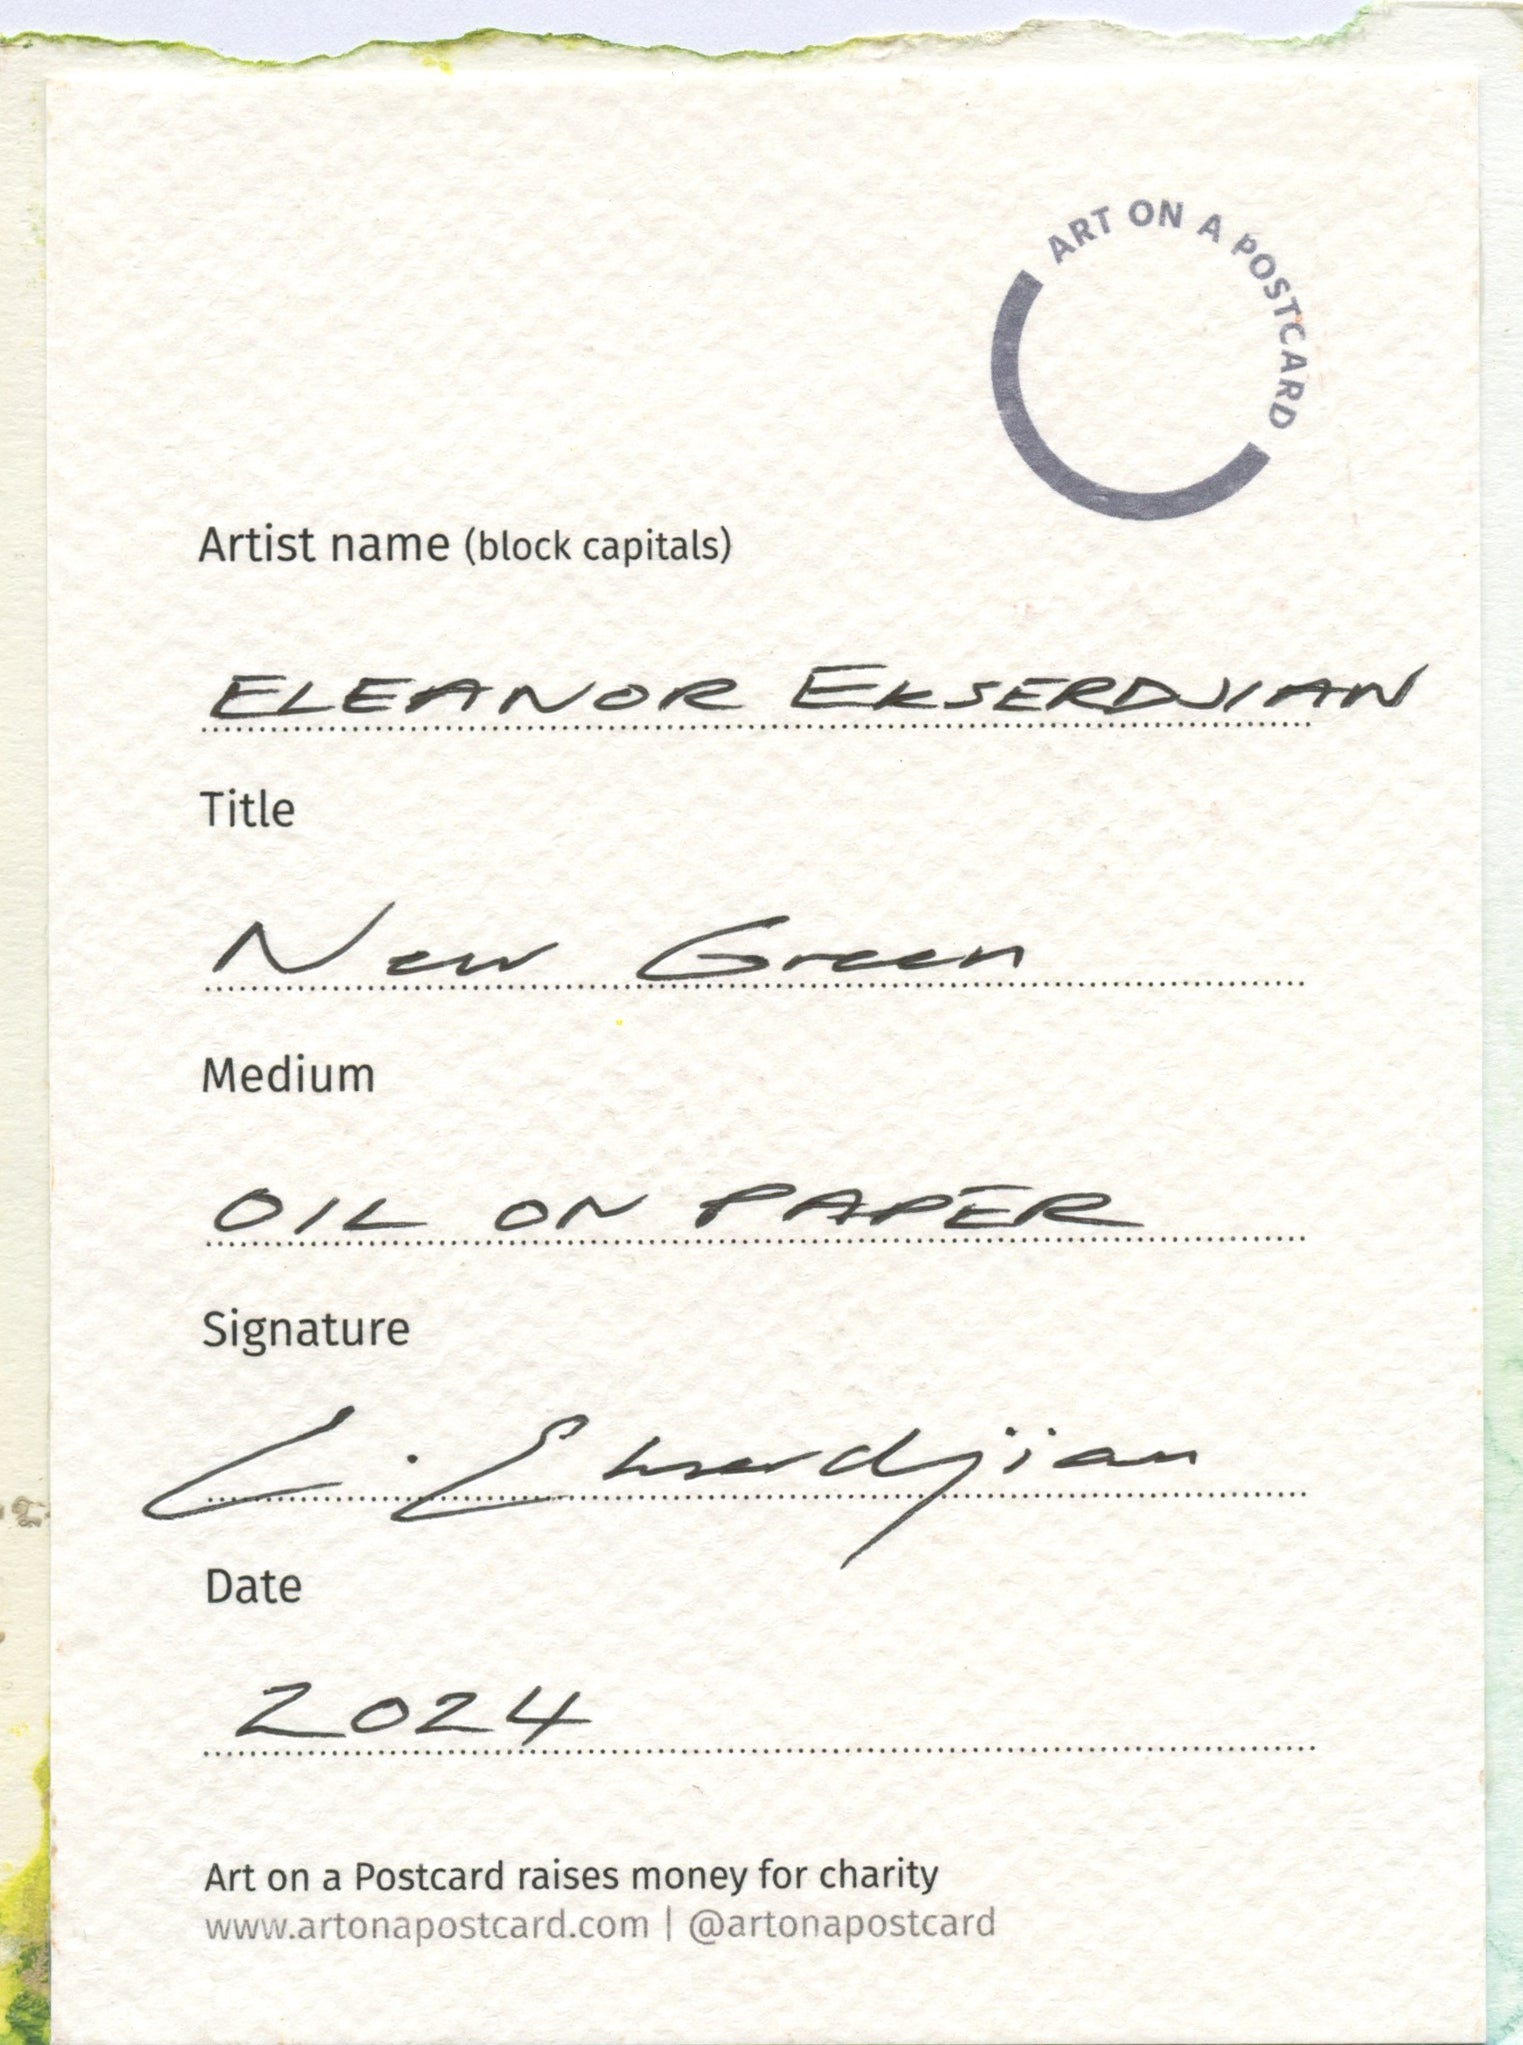 ART ON A POSTCARD
Artist name (block capitals)
ELEANOR EKSERDJIAN
Title
New Green
Medium
OIL ON PAPER
Signature
E. Ekserdjian
Date
2024
Art on a Postcard raises money for charity
www.artonapostcard.com | @artonapostcard